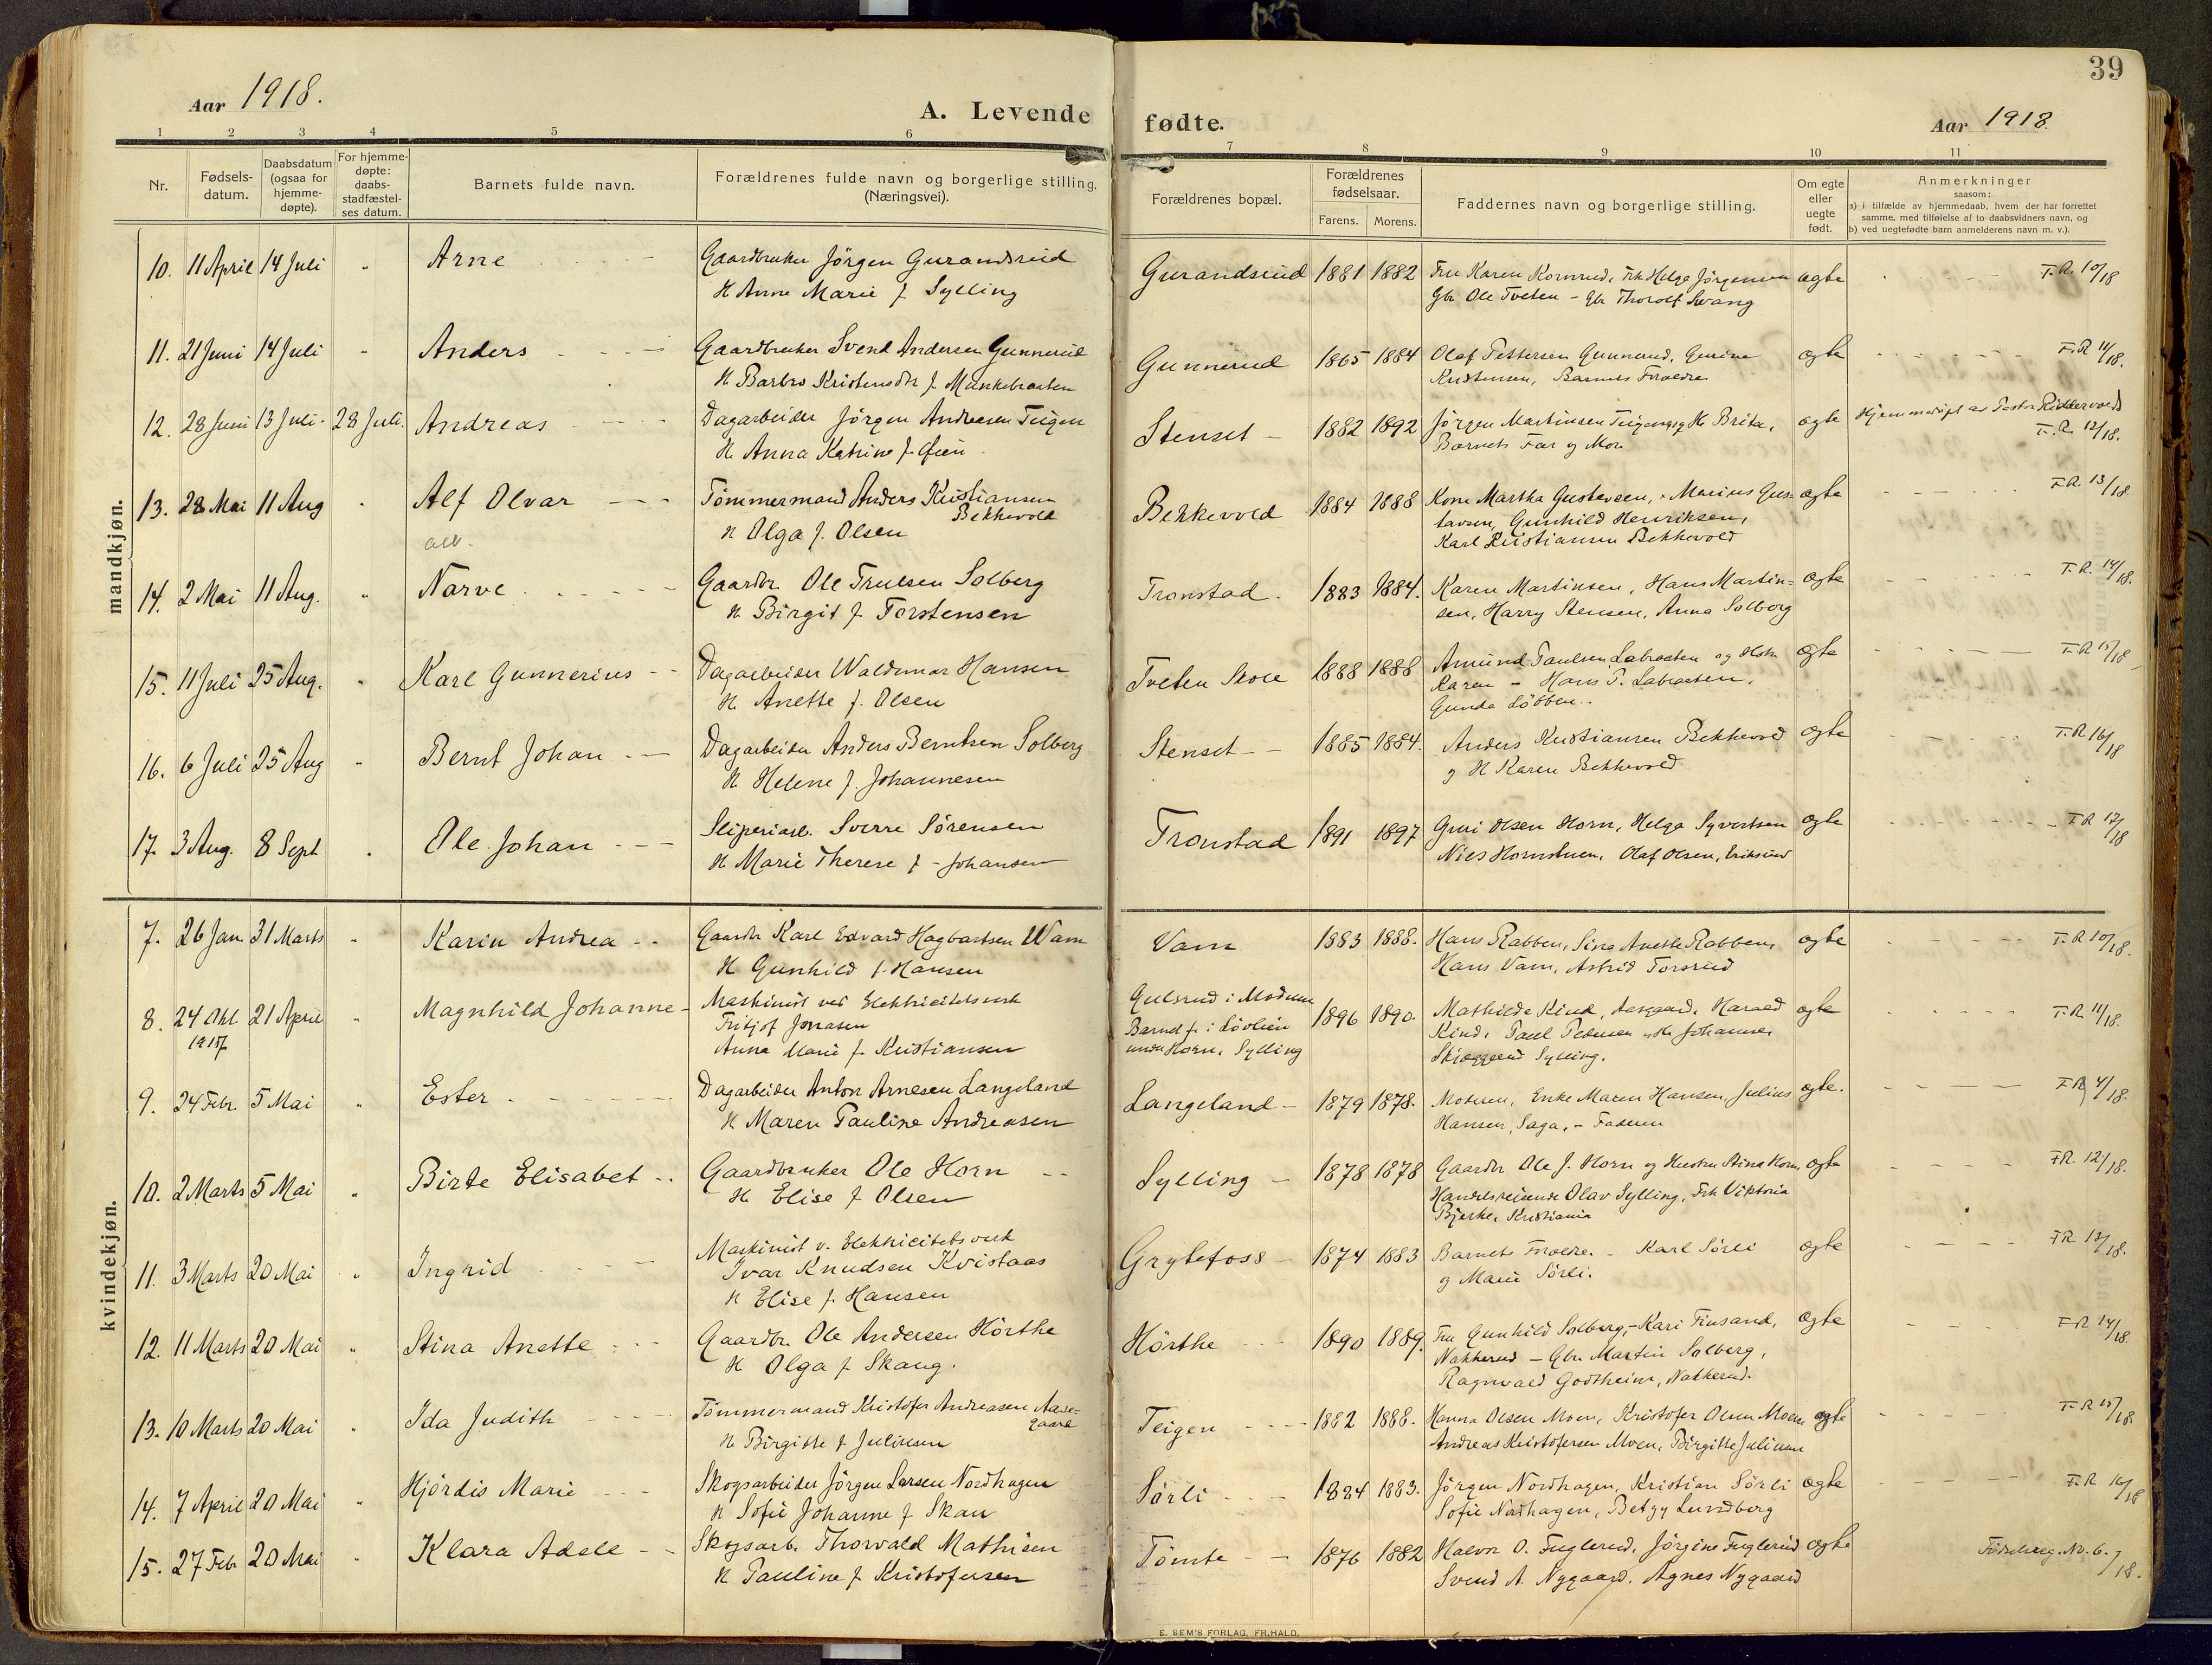 39
Aar 1918.
A. Levende fødte.
Aar 1918.
1 2 3 4 5 6 7 8 9 10 11
Nr.
Fødsels-
datum.
Daabsdatum
(ogsaa for
hjemme-
døpte).
For hjemme-
døpte:
daabs-
stadfæstel-
ses datum.
Barnets fulde navn.
Forældrenes fulde navn og borgerlige stilling.
(Næringsvei).
Forældrenes bopæl.
Forældrenes
fødselsaar.
Farens. Morens.
Faddernes navn og borgerlige stilling.
Om egte
eller
uegte
født.
Anmerkninger
saasom:
a) i tilfælde av hjemmedaab, hvem der har forrettet
samme, med tilføielse af to daabsvidners navn, og
b) ved uegtefødte barn anmelderens navn m. v.).
mandkjøn.
10. 11 April 14 Juli " Arne
Gaardbruker Jörgen Gurandsrud
H Anna Marie f. Sylling
Gurandsrud 1881 1882
Fru Karen Kornrud, Frk Helga Jörgensen
Gbr Ole Tveten - Gbr Thorolf Svang
egte F.R. 10/18
11. 21 Juni 14 Juli " Anders
Gaardbruker Svend Andersen Gunnerud
H Barbro Kristensdtr f. Munkebraaten
Gunnerud 1865 1884
Olaf Pettersen Gunnerud, Gurine
Kristensen, Barnets Forældre
egte F.R 11/18.
12. 28 Juni 13 Juli. 28 Juli. Andreas
Dagarbeider Jörgen Andresen Teigen
H. Anna Katrine f. Øien
Stenset 1882 1892
Jörgen Martinsen Teigen og H Brita,
Barnets Far og Mor
egte Hjemmedøpt av Pastor Riddervold
F.R. 12/18.
13. 28 Mai 11 Aug " Alf Olvar
Tömmermand Anders Kristiansen
Bekkevold
H Olga f. Olsen
Bekkevold 1884 1888
Kone Martha Gustavsen, Marius Gus-
tavsen, Gunhild Henriksen,
Karl Kristiansen Bekkevold
egte F.R. 13/18
14. 2 Mai 11 Aug. " Narve
Gaardbr. Ole Trulsen Solberg
H Birgit f. Torstensen
Tronstad. 1883 1884.
Karen Martinsen, Hans Martin-
sen, Harry Stensen, Anna Solberg
egte F.R. 14/18.
15. 11 Juli 25 Aug. " Karl Gunnerius
Dagarbeider Waldemar Hansen
H. Anette f. Olsen
Tveten Skole 1888 1888
Amund Paulsen Labraaten og Hstr
Karen - Hans P. Labraaten,
Gunda Löbben.
egte F.R 15/18
16. 6 Juli 25 Aug " Bernt Johan
Dagarbeider Anders Berntsen Solberg
H. Helene f. Johannesen
Stenset 1885 1884.
Anders Kristiansen Bekkevold
og H Karen Bekkevold
egte F.R 16/18
17. 3 Aug. 8 Sept " Ole Johan
Sliperiarb. Sverre Sörensen
H Marie Therese f - Johansen
Tronstad 1891 1897
Guri Olsen Horn, Helga Syvertsen
Nils Hornstuen, Olaf Olsen, Eriksrud
egte F.R 17/18
kvindekjøn.
7. 26 Jan 31 Marts " Karin Andrea
Gaardbr Karl Edvard Hagbartsen Wam
H Gunhild f. Hansen
Vam 1883 1888.
Hans Rabben, Sina Anette Rabben,
Hans Vam, Astrid Torsrud
egte F.R 10/18.
8. 24 Okt 21 April " Magnhild Johanne
1917
Maskinist ved Elektricitetsverk
Fritjof Jonasen
Anna Marie f. Kristiansen
Gulsrud i Modum
Barnet f. i Lövlien
under Horn, Sylling
1896 1890.
Mathilde Kind, Aasgaard, Harald
Kind, Paul Pedersen og H. Johanne
Skjæggerud Sylling.
egte F.R. 11/18.
9. 24 Febr. 5 Mai " Ester
Dagarbeider Anton Arnesen Langeland
H Maren Pauline Andreasen
Langeland 1879 1878.
Moderen, Enke Maren Hansen, Julius
Hansen, Saga, - Faderen
egte. F.R 4/18.
10. 2 Marts 5 Mai " Birte Elisabet
Gaardbruker Ole Horn
H Elise f Olsen
Sylling 1878 1878
Gaardbr Ole J. Horn og Hustru Stina Horn,
Handelsreisende Olav Sylling, Frk Viktoria
Bjerke, Kristiania
egte F.R. 12/18.
11. 3 Marts 20 Mai " Ingrid
Maskinist v. Elektricitetsverk
Ivar Knudsen Kvistaas
H Elise f. Hansen
Grytefoss 1874 1883
Barnets Forældre. - Karl Sörli
og Marie Sörli.
egte F.R. 13/18.
12. 11 Marts 20 Mai " Stina Anette
Gaardbr. Ole Andersen Hörthe
H Olga f Skaug.
Hörthe 1890 1889.
Fru Gunhild Solberg, - Kari Finsand,
Nakkerud - Gbr. Martin Solberg,
Ragnvald Godtheim, Nakkerud.
egte F.R. 14/18
13. 10 Marts 20 Mai " Ida Judith
Tömmermand Kristofer Andreasen Aase-
gaard
H Birgitte f Juliusen
Teigen 1882 1888.
Hanna Olsen Moen, Kristofer Olsen Moen
Andreas Kristofersen Moen, Birgitte Juliusen
egte F.R 15/18
14. 7 April 20 Mai " Hjördis Marie
Skogsarbeider Jörgen Larsen Nordhagen
H Sofie Johanne f Skau
Sörli 1884 1883.
Jörgen Nordhagen, Kristian Sörli
Sofie Nordhagen, Betzy Lundberg
egte F.R 16/18
15. 27 Feb 20 Mai " Klara Adele
Skogsarb. Thorvald Mathisen
H Pauline f Kristofersen
Tömte 1876 1882
Halvor O. Fuglerud, Jörgine Fuglerud
Svend A. Nygaard, Agnes Nygaard
egte Födselsreg. Nr. 6. 7/18.
E. SEM'S FORLAG, FR.HALD.